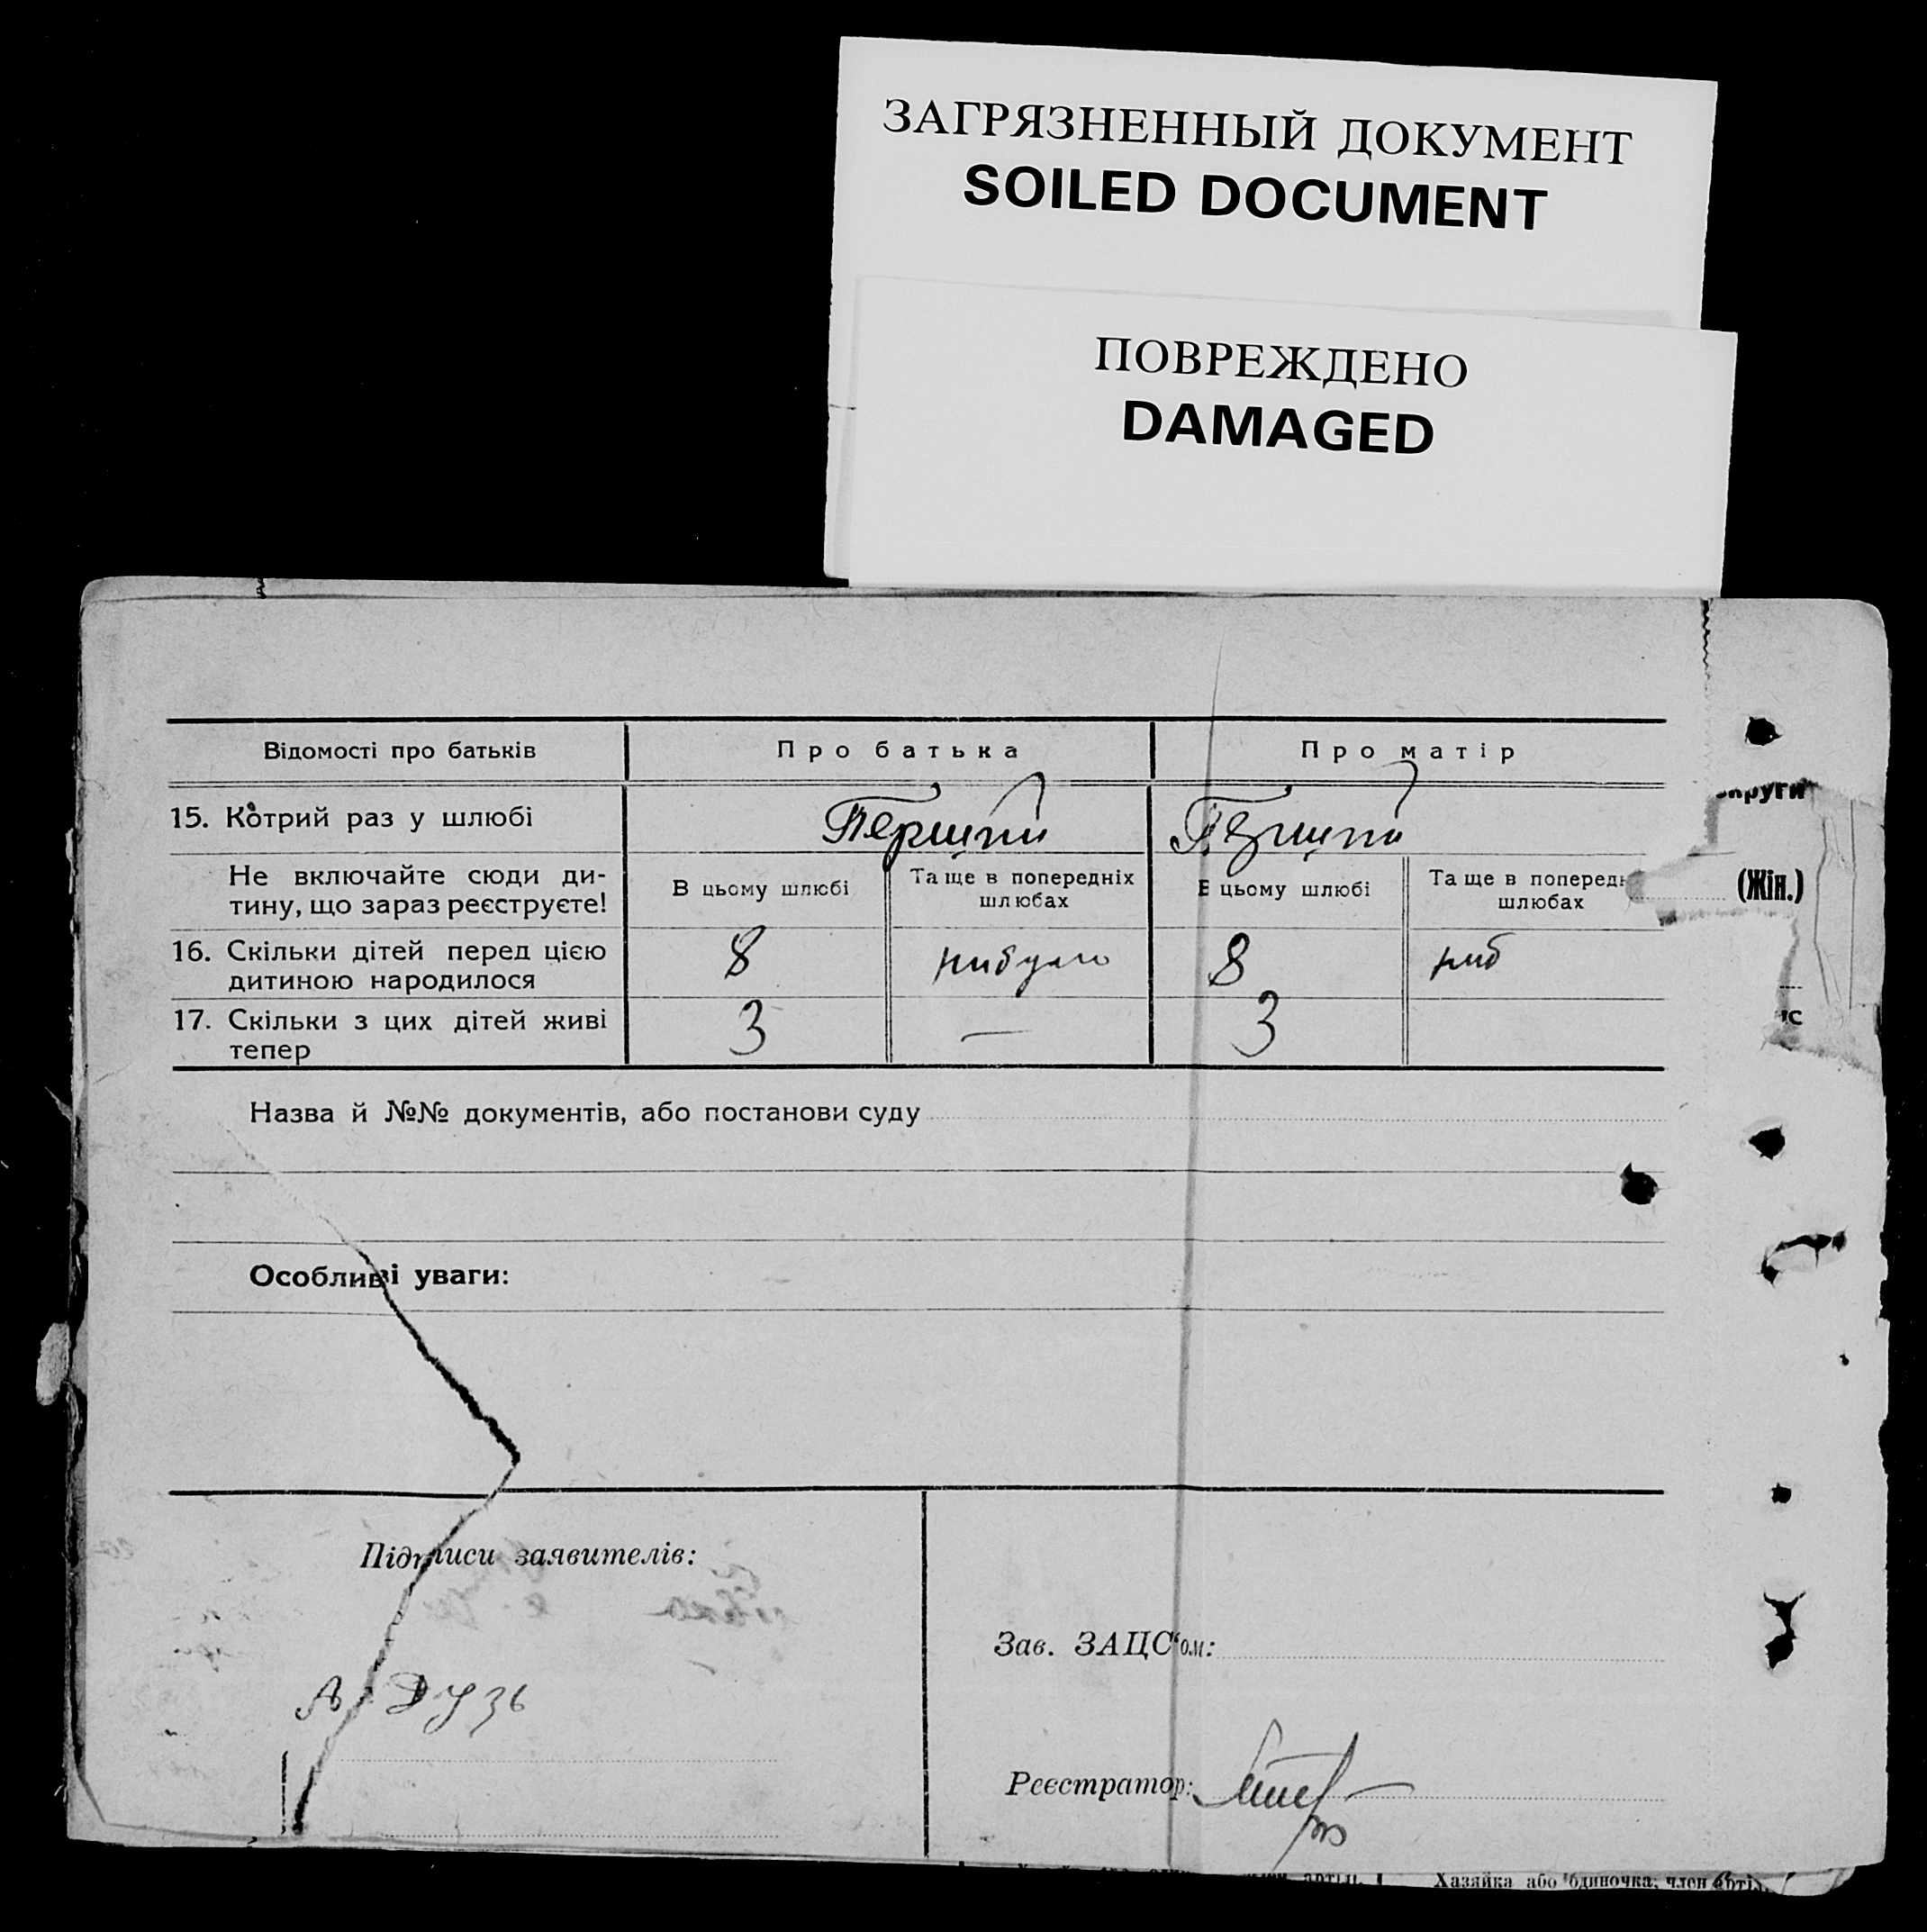 ЗАГРЯЗНЕННЫЙ ДОКУМЕНТ
SOILED DOCUMENT
ПОВРЕЖДЕНО
DAMAGED
Відомості про батьків Про батька Про матір
15. Котрий раз у шлюбі Перший Перший
Не включайте сюди ди-
тину, що зараз реєструєте!
В цьому шлюбі
Та ще в попередніх
шлюбах
В цьому шлюбі
Та ще в поперед
шлюбах
(Жін.)
16. Скільки дітей перед цією
дитиною народилося
8 8
17. Скільки з цих дітей живі
тепер
3 — 3
Назва й №№ документів, або постанови суду
Особливі уваги:
Підписи заявителів:
А Дузь
Зав. ЗАЦС'ом:
Реєстратор:
артіл. Хазяйка або одиночка, член артіл.